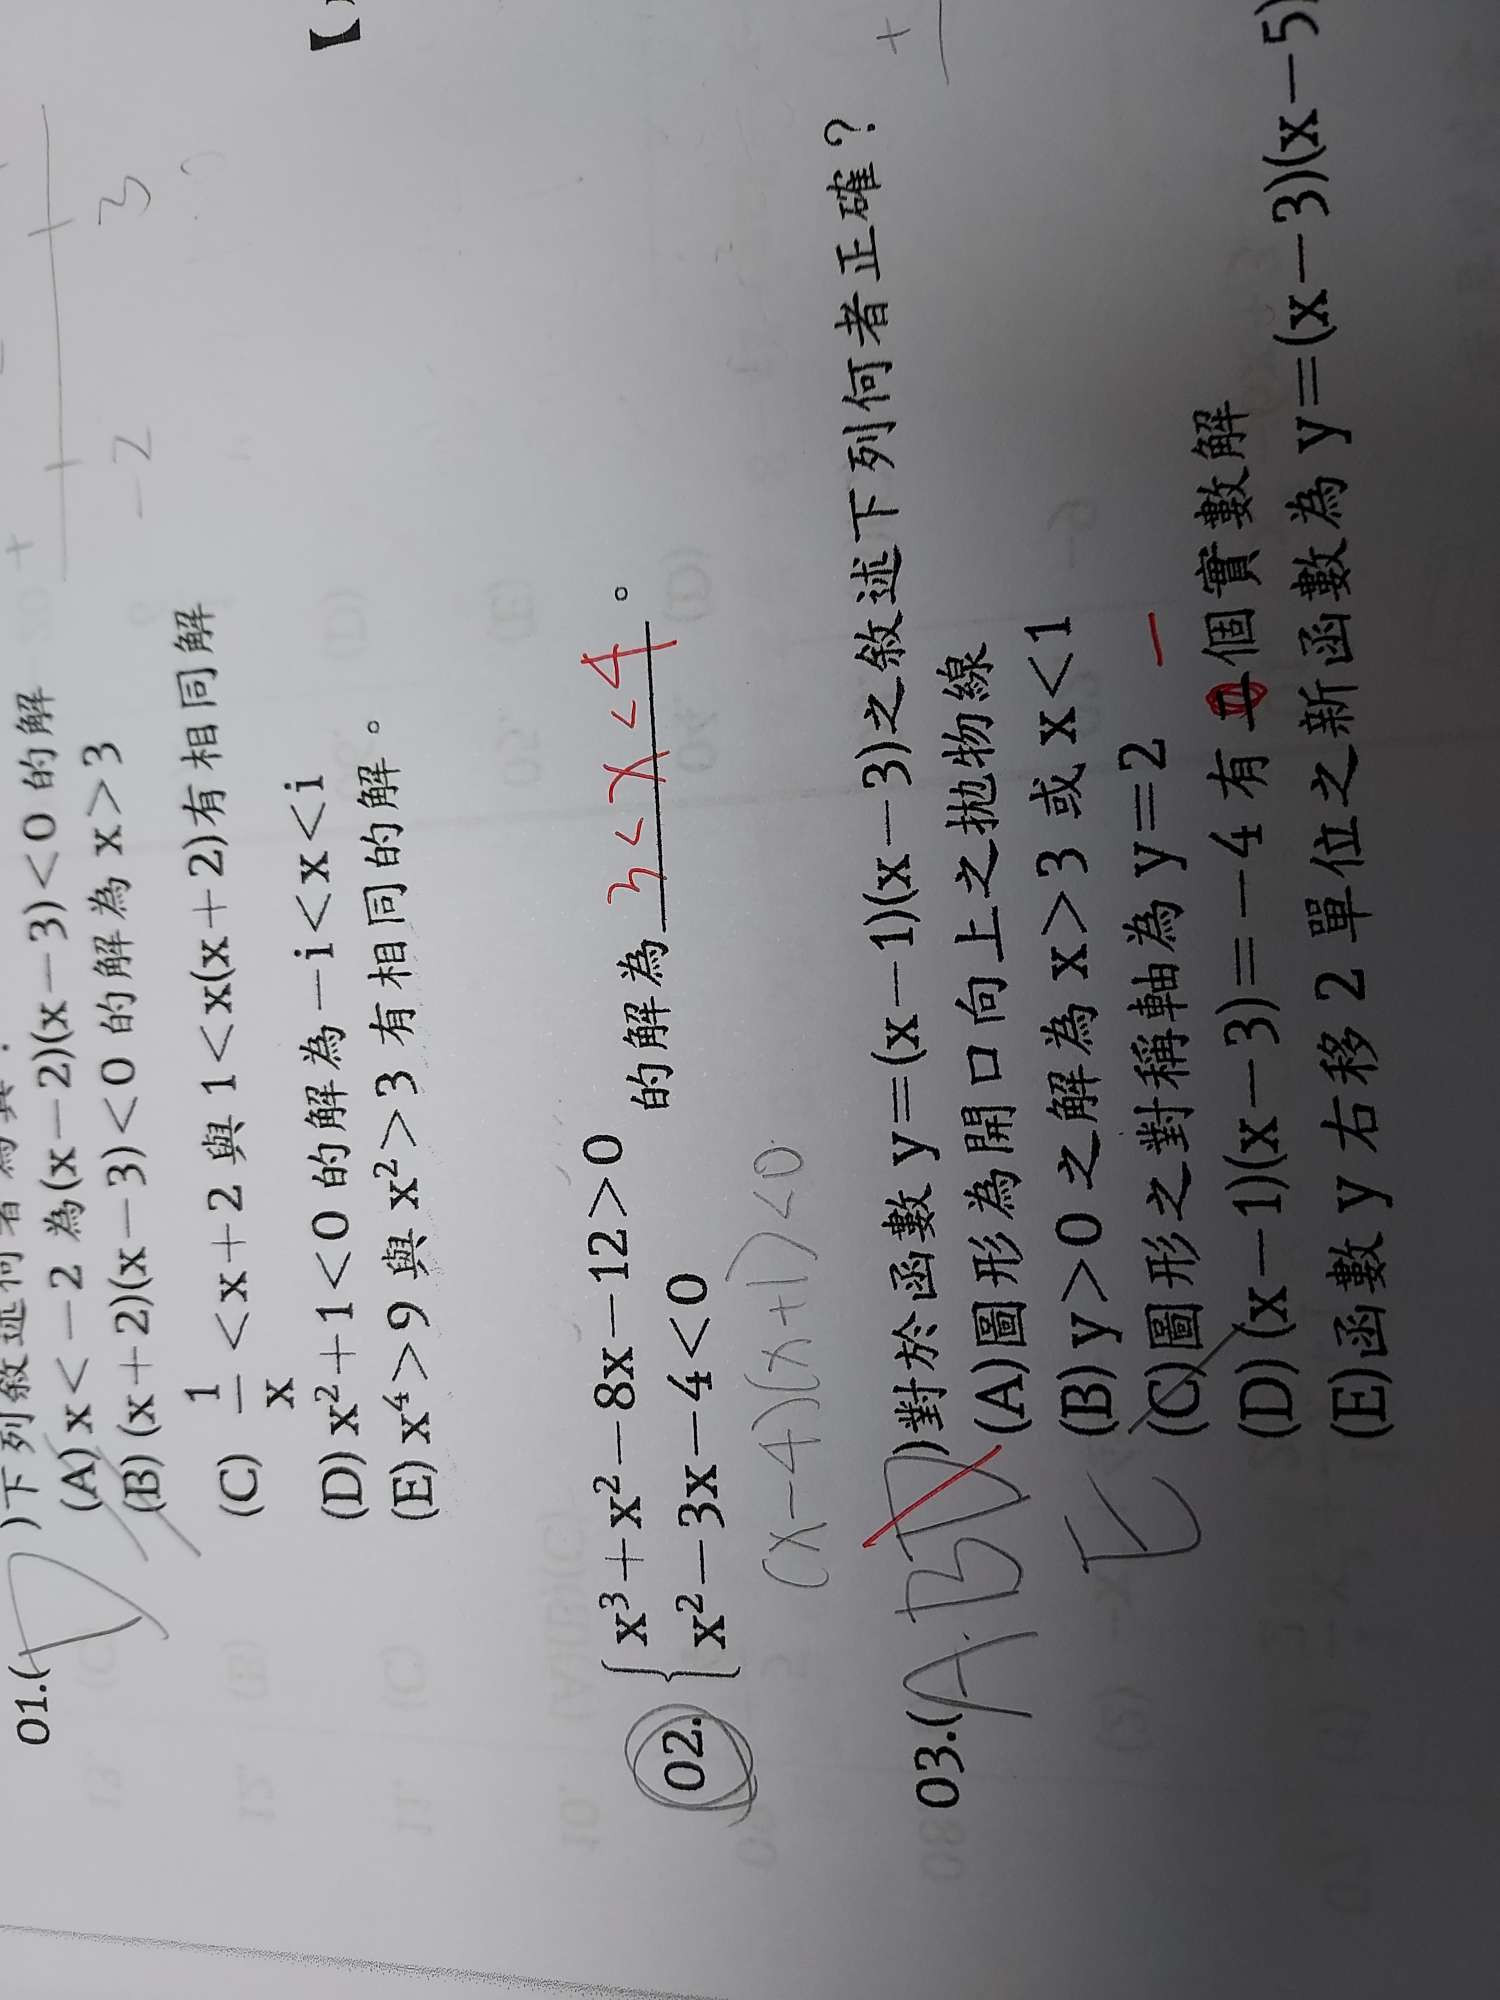 01.( )下列敘述何者為真?
(A) x<-2 為(x-2)(x-3)<0 的解
(B) (x+2)(x-3)<0 的解為 x>3
-2 3
(C) 1/x <x+2 與 1<x(x+2)有相同解
(D) x²+1<0 的解為-i<x<i
(E) x⁴>9 與 x²>3 有相同的解。
02. { x³+x²-8x-12>0
x²-3x-4<0 的解為 3<x<4 。
(x-4)(x+1)<0
03.(ABD )對於函數 y=(x-1)(x-3)之敘述下列何者正確?
E
(A)圖形為開口向上之拋物線
(B) y>0 之解為 x>3 或 x<1
(C)圖形之對稱軸為 y=2
(D) (x-1)(x-3)=-4 有 個實數解
(E)函數 y 右移 2 單位之新函數為 y=(x-3)(x-5)